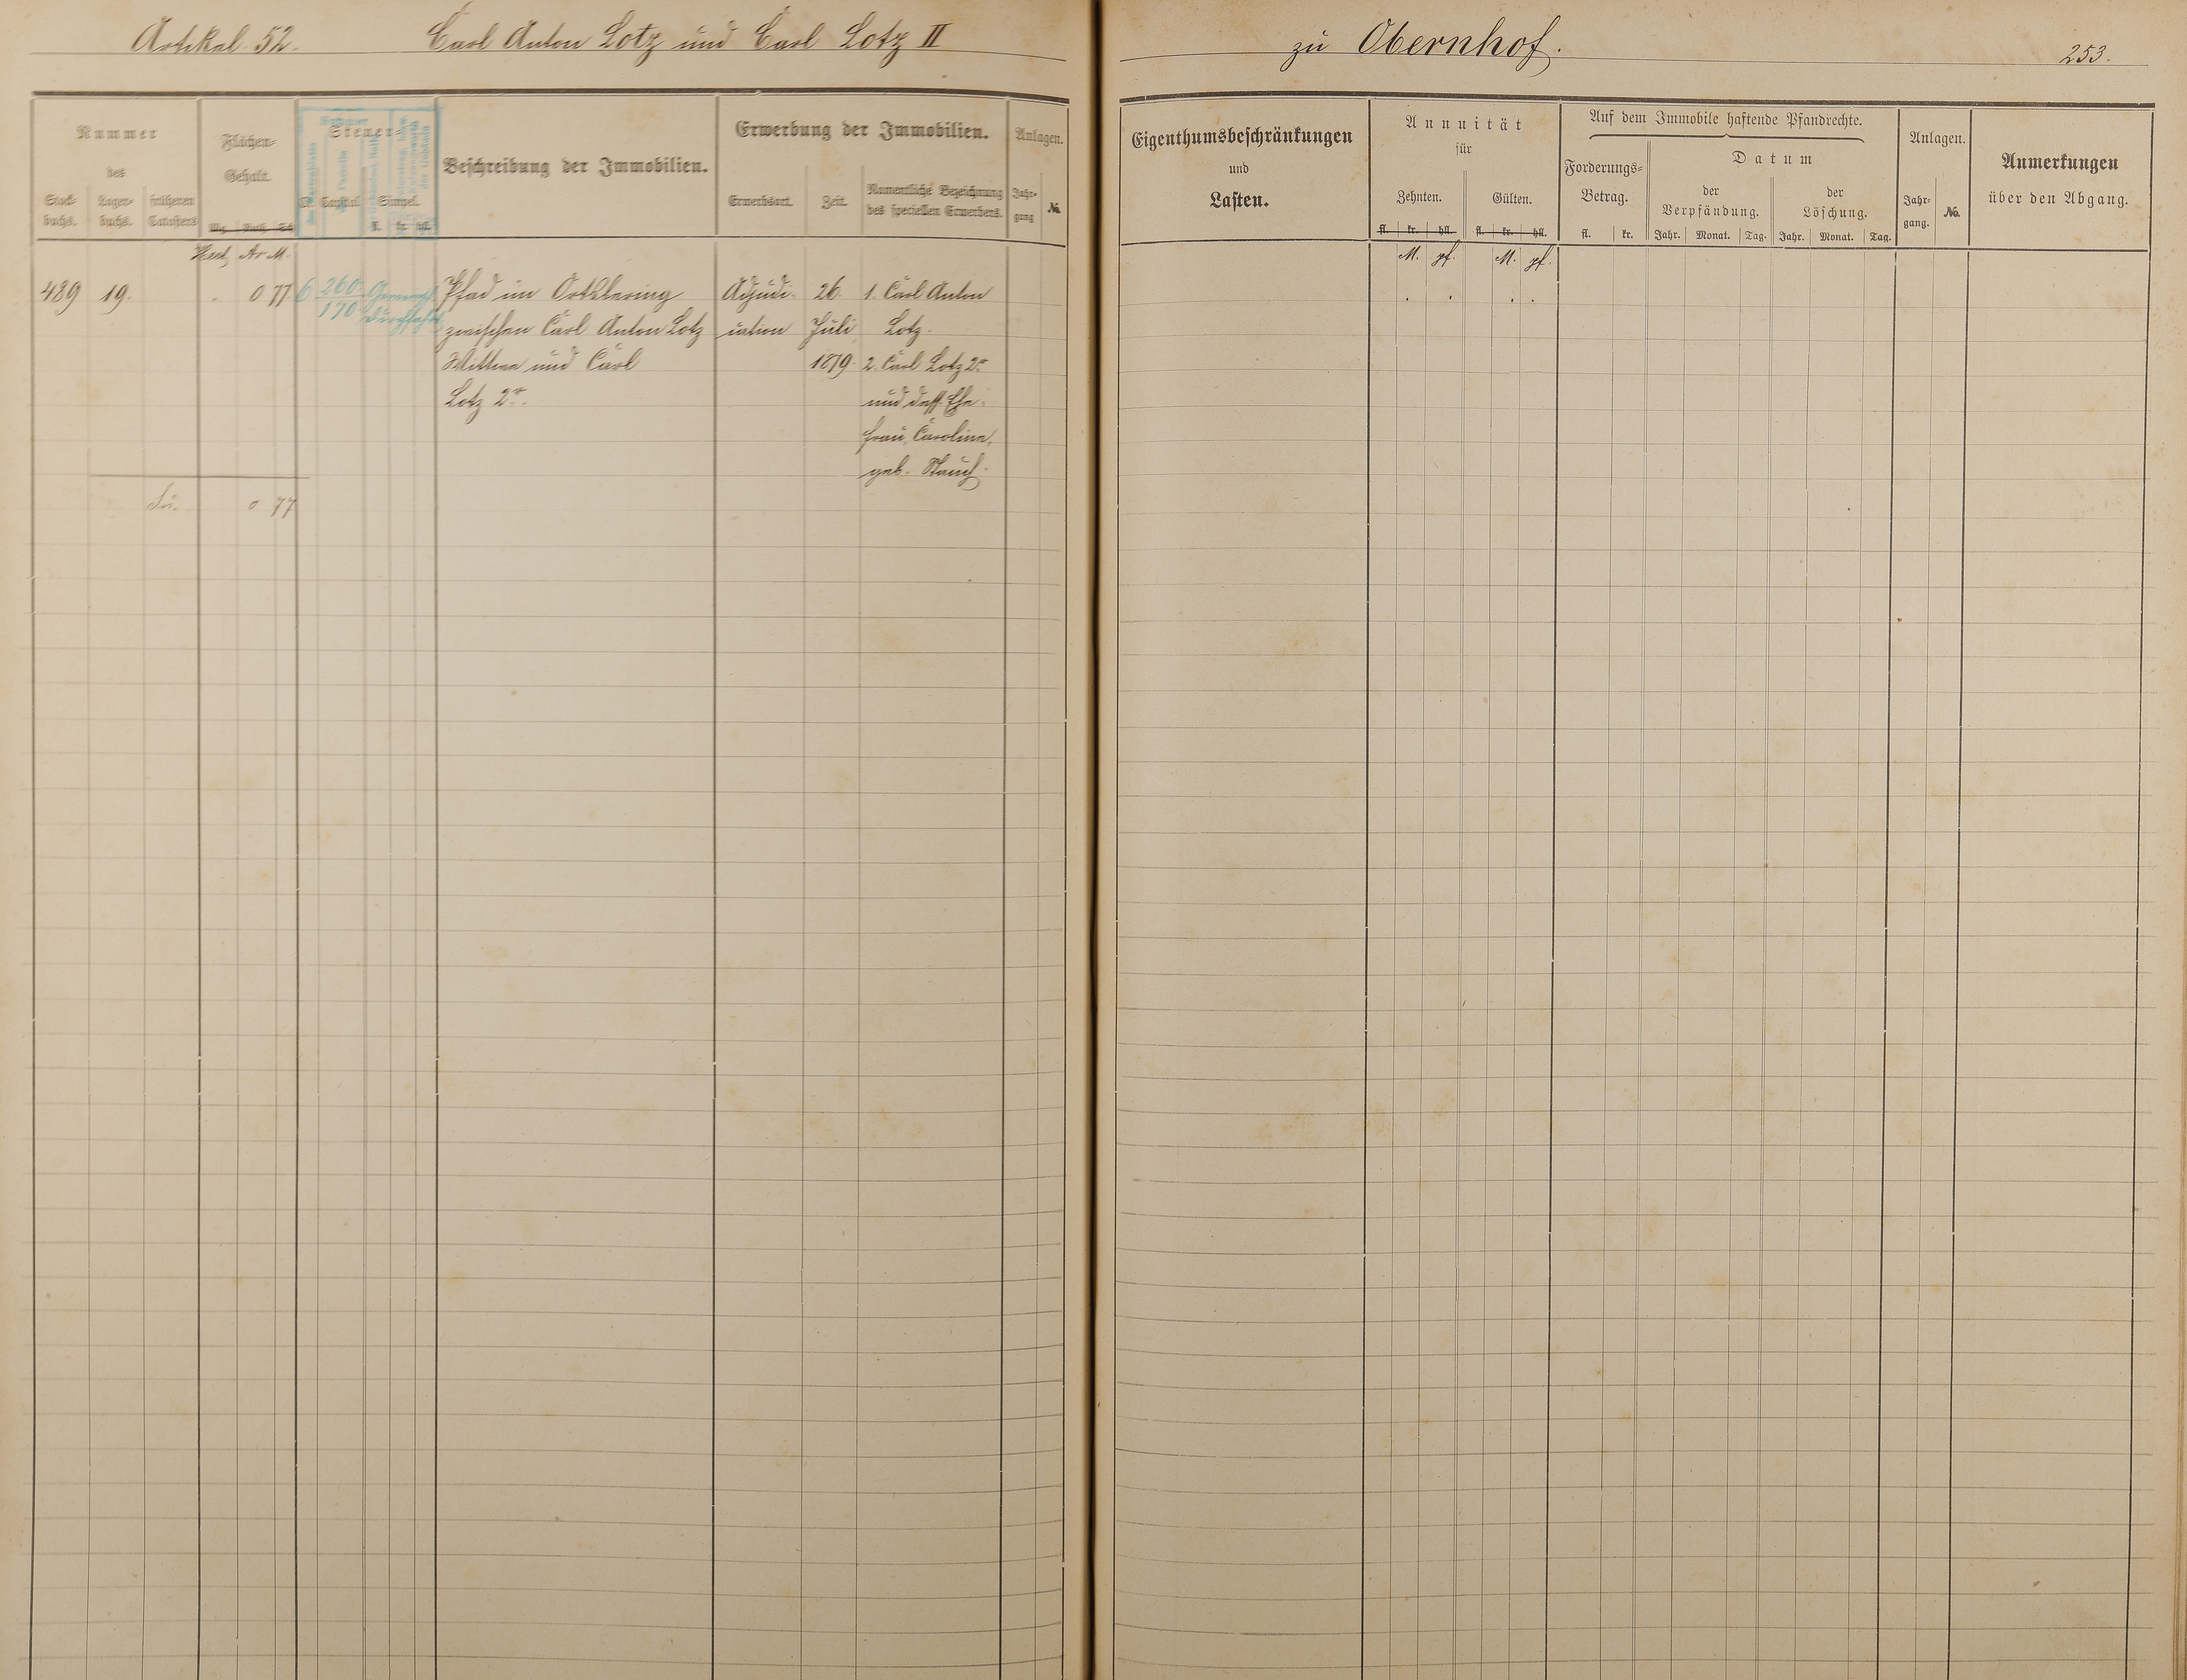 Artikel 52. Carl Anton Lotz und Carl Lotz II
zu Obernhof. 253.
Nummer
des
Stock-
buchs.
Lager-
buchs.
früheren
Catasters
Flächen-
Gehalt.
Steuer-
Cl. Capital Simpel.
fl. kr. hll.
Beschreibung der Immobilien.
Erwerbung der Immobilien.
Erwerbsart. Zeit. Namentliche Bezeichnung
des speciellen Erwerbers.
Anlagen.
Jahr-
gang
№
Hect. Ar M.
489 19. . 0 77 6 260 Pfad im Ortsbering Adjudi- 26. 1. Carl Anton
170 zwischen Carl Anton Lotz cation Juli Lotz.
Wittwe und Carl 1879. 2. Carl Lotz 2r
Lotz 2r. und dess. Ehe-
frau, Caroline,
geb. Stauch.
Sa. 0 77
Eigenthumsbeschränkungen
und
Lasten.
Annuität
für
Zehnten. Gülten.
fl. kr. hll. fl. kr. hll.
M. pf. M. pf.
Auf dem Immobile haftende Pfandrechte.
Forderungs-
Betrag.
fl. kr.
Datum
der
Verpfändung.
Jahr. Monat. Tag.
der
Löschung.
Jahr. Monat. Tag.
Anlagen.
Jahr-
gang.
№.
Anmerkungen
über den Abgang.